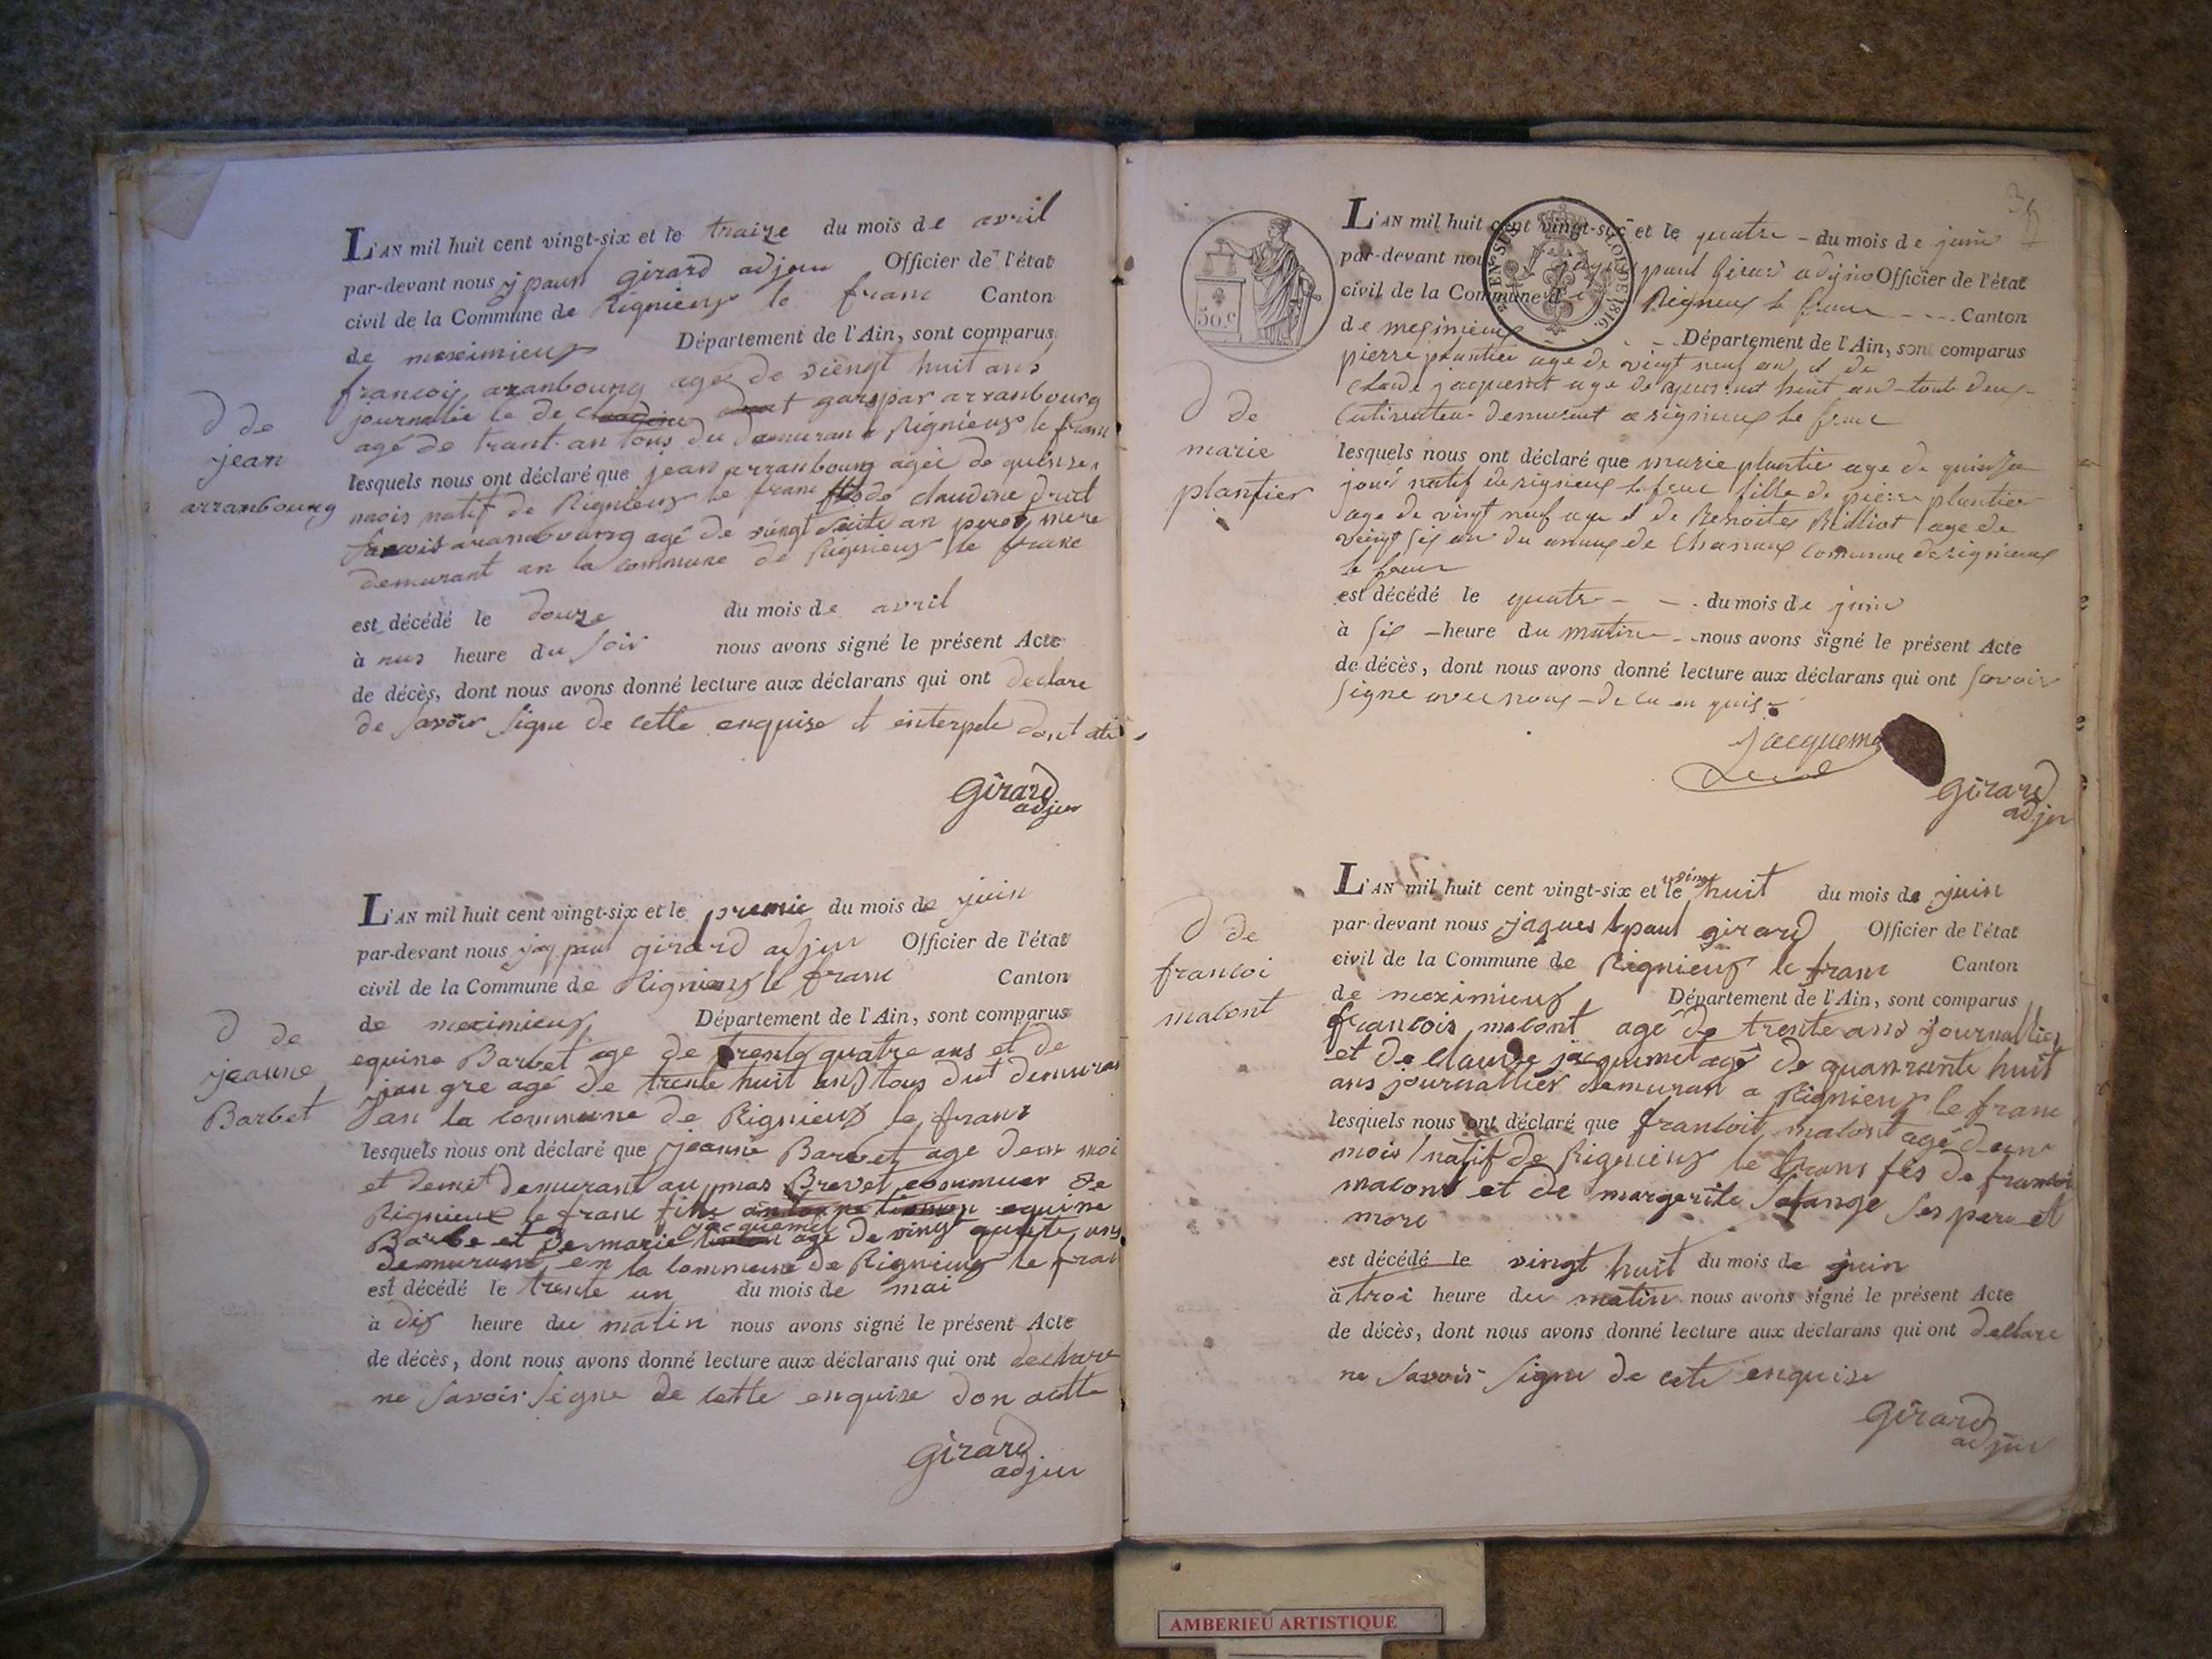 L'AN mil huit cent vingt-six et le traize du mois de avril
par-devant nous j paul girard adjou Officier de l'état
civil de la Commune de Rignieux le franc Canton
de meximieux Département de l'Ain, sont comparus
francois aranbourg age de viengt huit ans
journalie le de gaspar arranbourg
agé de trant an tous du demuran a Rignieux le franc
lesquels nous ont déclaré que jean arranbourg agée de quinze
mois natif de Rignieux le franc fils de claudine druet
francois aranbourg agé de viengt huite an peret mere
demurant an la commune de Rignieux le franc
est décédé le douze du mois de avril
à heure du soir nous avons signé le présent Acte
de décès, dont nous avons donné lecture aux déclarans qui ont declare
de savoir signe de cette enquise et enterpele dont
Girard
adjou
D de
jean
arranbourg
L'AN mil huit cent vingt-six et le premie du mois de juin
par-devant nous jaq paul girard adjou Officier de l'état
civil de la Commune de Rignieux le franc Canton
de meximieux Département de l'Ain, sont comparus
equine Barbet age de trente quatre ans et de
jean gre agé de trente huit ans tous dut demuran
dan la commune de Rignieux le franc
lesquels nous ont déclaré que jeanne Barbet age deun moi
et demet demurant au mas Brevet coummuer de
Rignieux le franc fille equine
Barbe et de marie jacquemet age de vingt quatre ans
demurant en la commune de Rignieux le fran
est décédé le trente un du mois de mai
à dix heure du matin nous avons signé le présent Acte
de décès, dont nous avons donné lecture aux déclarans qui ont declare
ne savoir signe de cette enquise don actte
Girard
adjou
D de
jeanne
Barbet
L'AN mil huit cent vingt-six et le quatre du mois de juin
par-devant nous jaques paul Girard Officier de l'état
civil de la Commune de Rigneux le franc Canton
de meximieux Département de l'Ain, sont comparus
pierre plantier age de vingt neuf an et de
claude jacquemet age de quarant huit an tout deux
cultivateur demurant a rignieux le franc
lesquels nous ont déclaré que marie plantie age de quinze
jour natif de rignieux le franc fille de pierre plantier
age de vingt neuf et de Benoite Billiot age de
veingt six an du de commune de rignieux
le franc
est décédé le quatre du mois de juin
à six heure du matin nous avons signé le présent Acte
de décès, dont nous avons donné lecture aux déclarans qui ont savoir
signe avec nous de ca en quise
Jacquemet
Girard
adjou
D de
marie
plantier
50 C
LOI DE 1816.
L'AN mil huit cent vingt-six et le vingt huit du mois de juin
par-devant nous jaques paul girard Officier de l'état
civil de la Commune de Rignieux le franc Canton
de meximieux Département de l'Ain, sont comparus
francois macont age de trente ans journallier
et de claude jacquemet agé de quanrante huit
ans journallier demuran a Rignieux le franc
lesquels nous ont déclaré que francoit macont agé deun
mois natif de Rignieux le franc fis de francoi
macont et de margerite ses pere et
mere
est décédé le vingt huit du mois de juin
à troi heure du matin nous avons signé le présent Acte
de décès, dont nous avons donné lecture aux déclarans qui ont declare
ne savoir signe de cete enquise
Girard
adjou
D de
francoi
macont
AMBERIEU ARTISTIQUE